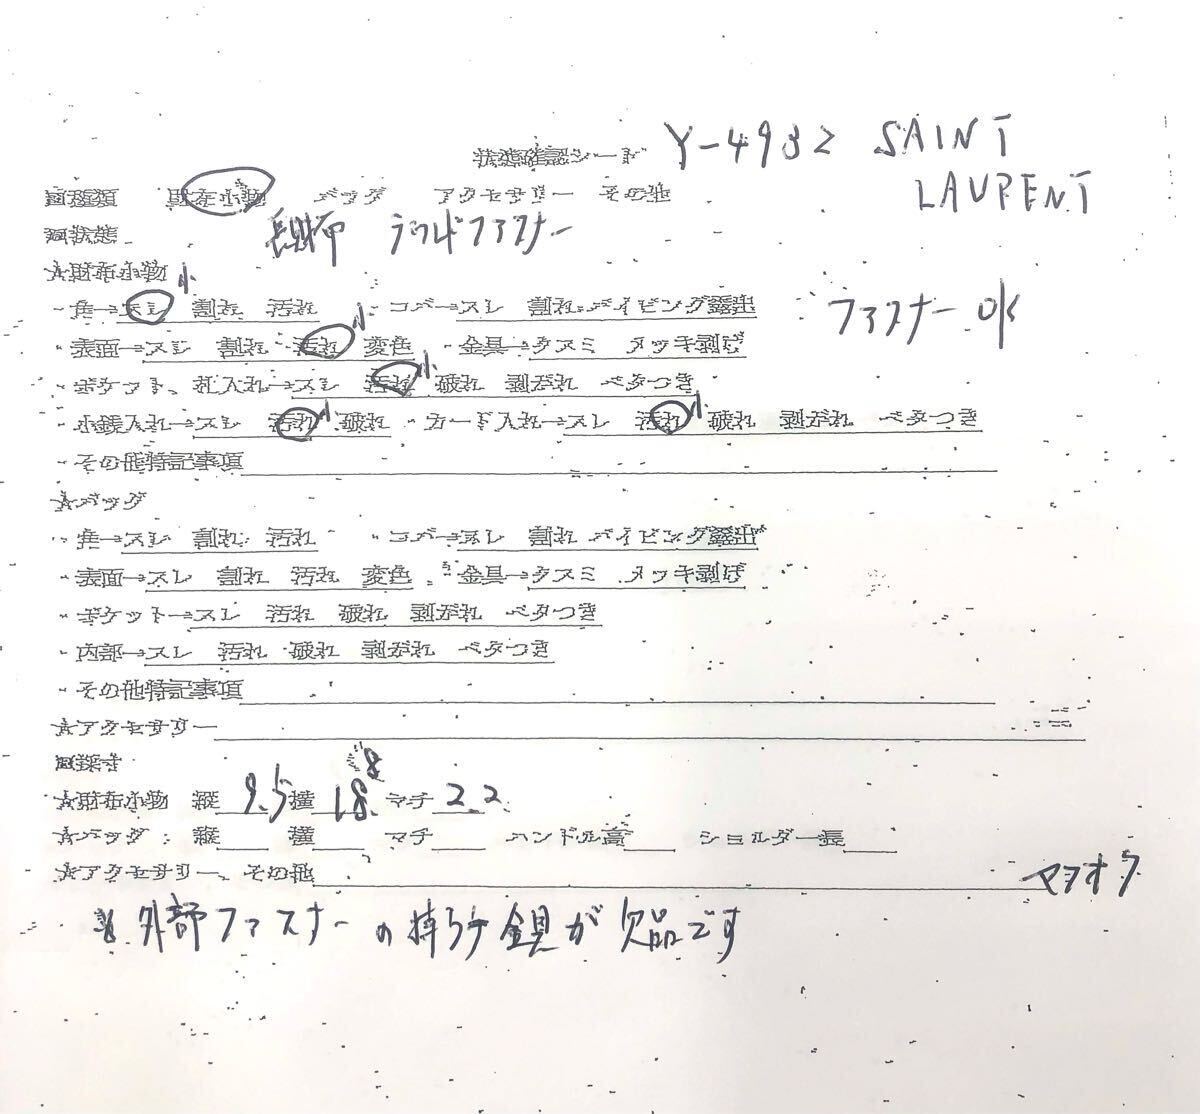 状態確認シード Y-4932 SAINT LAURENT
回種類 財布小物 バッグ アクセサリー その他
長財布 ラウンドファスナー
回状態
☆財布小物 小
・角→スレ 割れ 汚れ ・コバ→スレ 割れ パイピング露出 ファスナー OK
・表面→スレ 割れ 汚れ 小 変色 ・金具→クスミ メッキ剥げ
・ポケット、札入れ→スレ 汚れ 小 破れ 剥がれ ベタつき
・小銭入れ→スレ 汚れ 小 破れ ・カード入れ→スレ 汚れ 小 破れ 剥がれ ベタつき
・その他特記事項
☆バッグ
・角→スレ 割れ 汚れ ・コバ→スレ 割れ パイピング露出
・表面→スレ 割れ 汚れ 変色 ・金具→クスミ メッキ剥げ
・ポケット→スレ 汚れ 破れ 剥がれ ベタつき
・内部→スレ 汚れ 破れ 剥がれ ベタつき
・その他特記事項
☆アクセサリー
回採寸
☆財布小物 縦 9.5 横 18.8 マチ 2.2
☆バッグ 縦 横 マチ ハンドル高 ショルダー長
☆アクセサリー、その他 マヨオク
※ 外部ファスナーの持ち手金具が欠品です